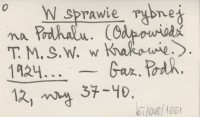 W sprawie rybnej
na Podhalu. (Odpowiedź
T. M. S. W. w Krakowie.)
1924... — Gaz. Podh.
12, nry 37-40.